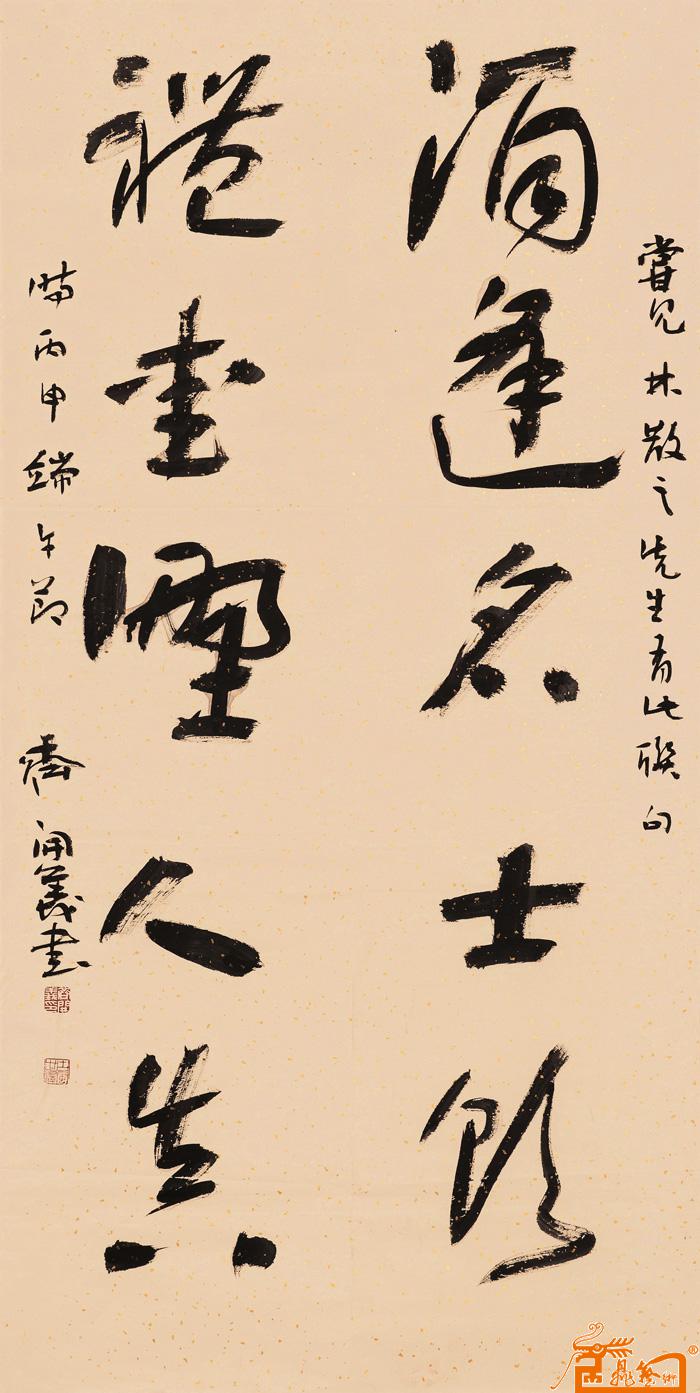 嘗見林散之先生有此聯句
酒逢名士飲
禮重聖人真
時丙申端午節 開義書